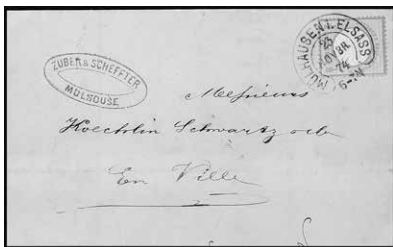 ZUBER & SCHEFFTER
MULHOUSE
MÜLHAUSEN I. ELSASS
23
NOVBR.
74
6-7N
Messieurs
Koechlin Schwartz & Cie
En Ville